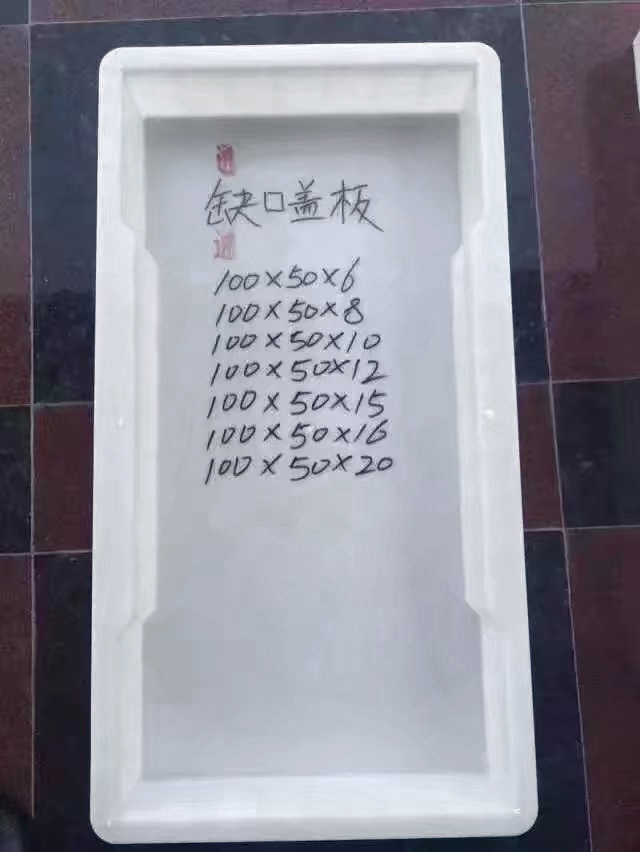 通
缺口盖板
通
100×50×6
100×50×8
100×50×10
100×50×12
100×50×15
100×50×16
100×50×20